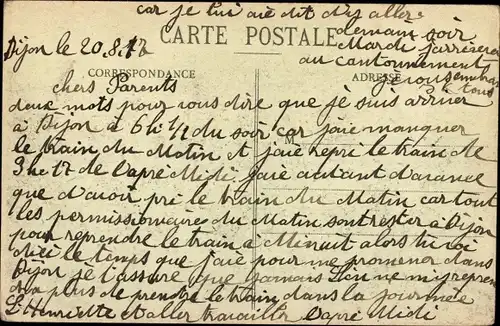 car je lui aie dit d'y aller
demain soir
CARTE POSTALE
Dijon le 20.8.17
Mardi j'arriserer
au cantonnement
CORRESPONDANCE
ADRESSE
je vous embrasse
tous
chers Parents
deux mots pour vous dire que je suis arriver
à Dijon a 6h 1/2 du soir car j'aie manquer
le train du Matin et j'aie repri le train de
3h 17 de l'apré Midi, j'aie autant d'avance
que d'avoir pri le train du Matin car tout
les permissionnaire du Matin sont rester a Dijon
pour reprendre le train a Minuit alors
le temps que j'aie pour me promener dans
Dijon je t'assure que jamais l'on ne m'y repren
dra plus de prendre le train dans la journée
Henriette et aller travailler l'apré Midi